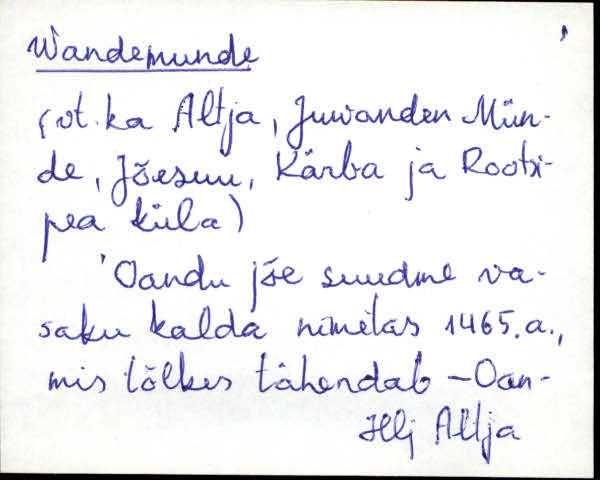 Wandemunde
(vt. ka Altja, Juwanden Mün-
de, Jõesuu, Kärba ja Rootsi-
pea küla)
'Oandu jõe suudme va-
saku kalda nimetas 1465.a.,
mis tõlkes tähendab - Oan-
Hlj Altja